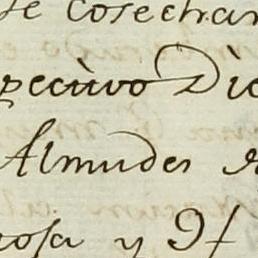 se cosechan
pectivo Die
Almudes
rosa y